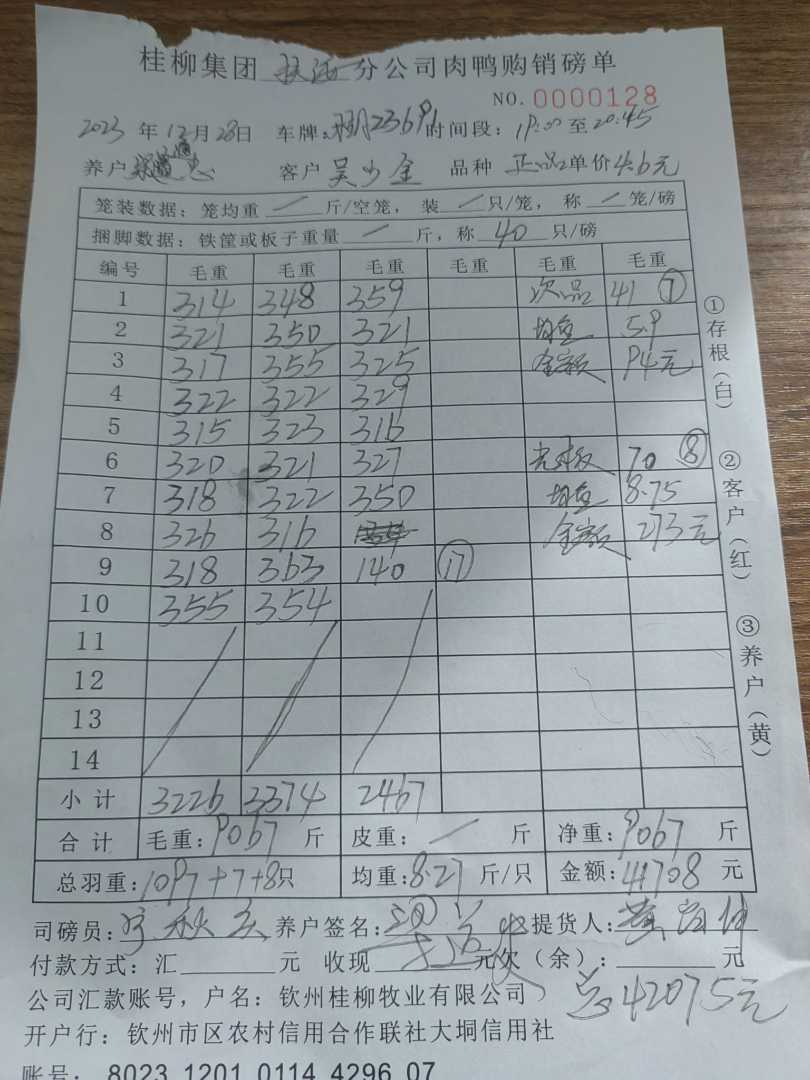 桂柳集团 分公司肉鸭购销磅单
NO. 0000128
2023 年 12 月 28 日 车牌: 23691 时间段: 19:00 至 20:45
养户 忠 客户 吴少金 品种 正品 单价 4.6 元
笼装数据: 笼均重 / 斤/空笼, 装 / 只/笼, 称 / 笼/磅
捆脚数据: 铁筐或板子重量 / 斤, 称 40 只/磅
编号 毛重 毛重 毛重 毛重 毛重 毛重
1 314 348 359 次品 41 ⑦
2 321 350 321 均重 5.9
3 317 355 325 金额 94元
4 322 322 329
5 315 323 316
6 320 321 327 70 ⑧
7 318 322 350 均重 8.75
8 326 316 金额 273元
9 318 363 140 ⑰
10 355 354
11
12
13
14
小计 3226 3374 2467
合计 毛重: 9067 斤 皮重: / 斤 净重: 9067 斤
总羽重: 1097+7+8只 均重: 8.27 斤/只 金额: 41708 元
司磅员: 养户签名: 提货人:
付款方式: 汇 元 收现 元欠(余): 元
公司汇款账号, 户名: 钦州桂柳牧业有限公司) 总42075元
开户行: 钦州市区农村信用合作联社大垌信用社
账号: 8023 1201 0114 4296 07
①存根(白)
②客户(红)
③养户(黄)